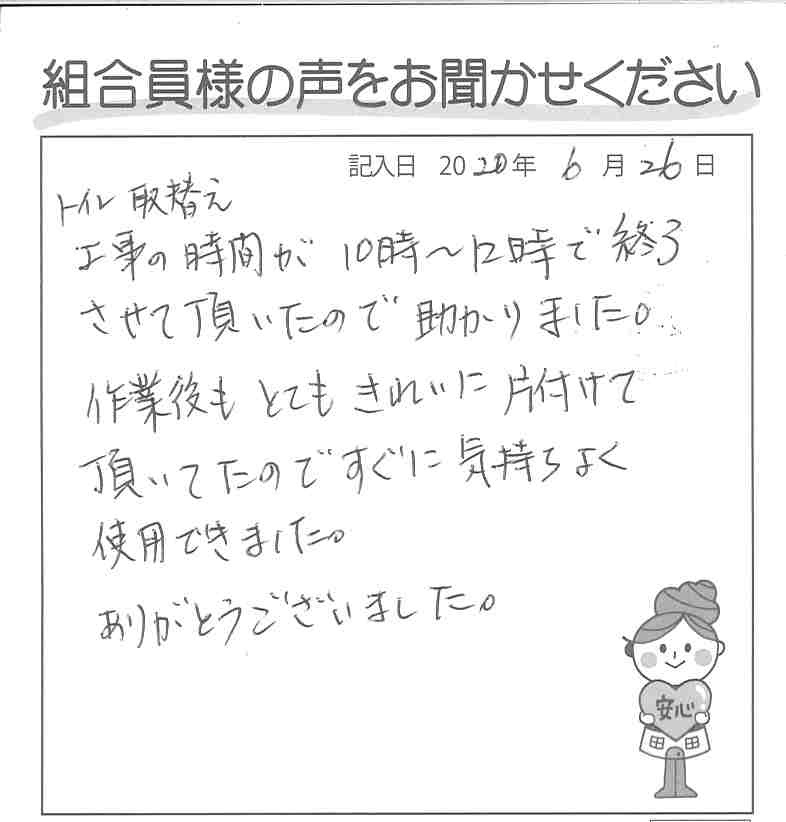 組合員様の声をお聞かせください
記入日 2020年 6月26日
トイレ 取替え
工事の時間が 10時〜12時で終了
させて頂いたので助かりました。
作業後も とても きれいに 片付けて
頂いてたのですぐに 気持ちよく
使用できました。
ありがとうございました。
安心